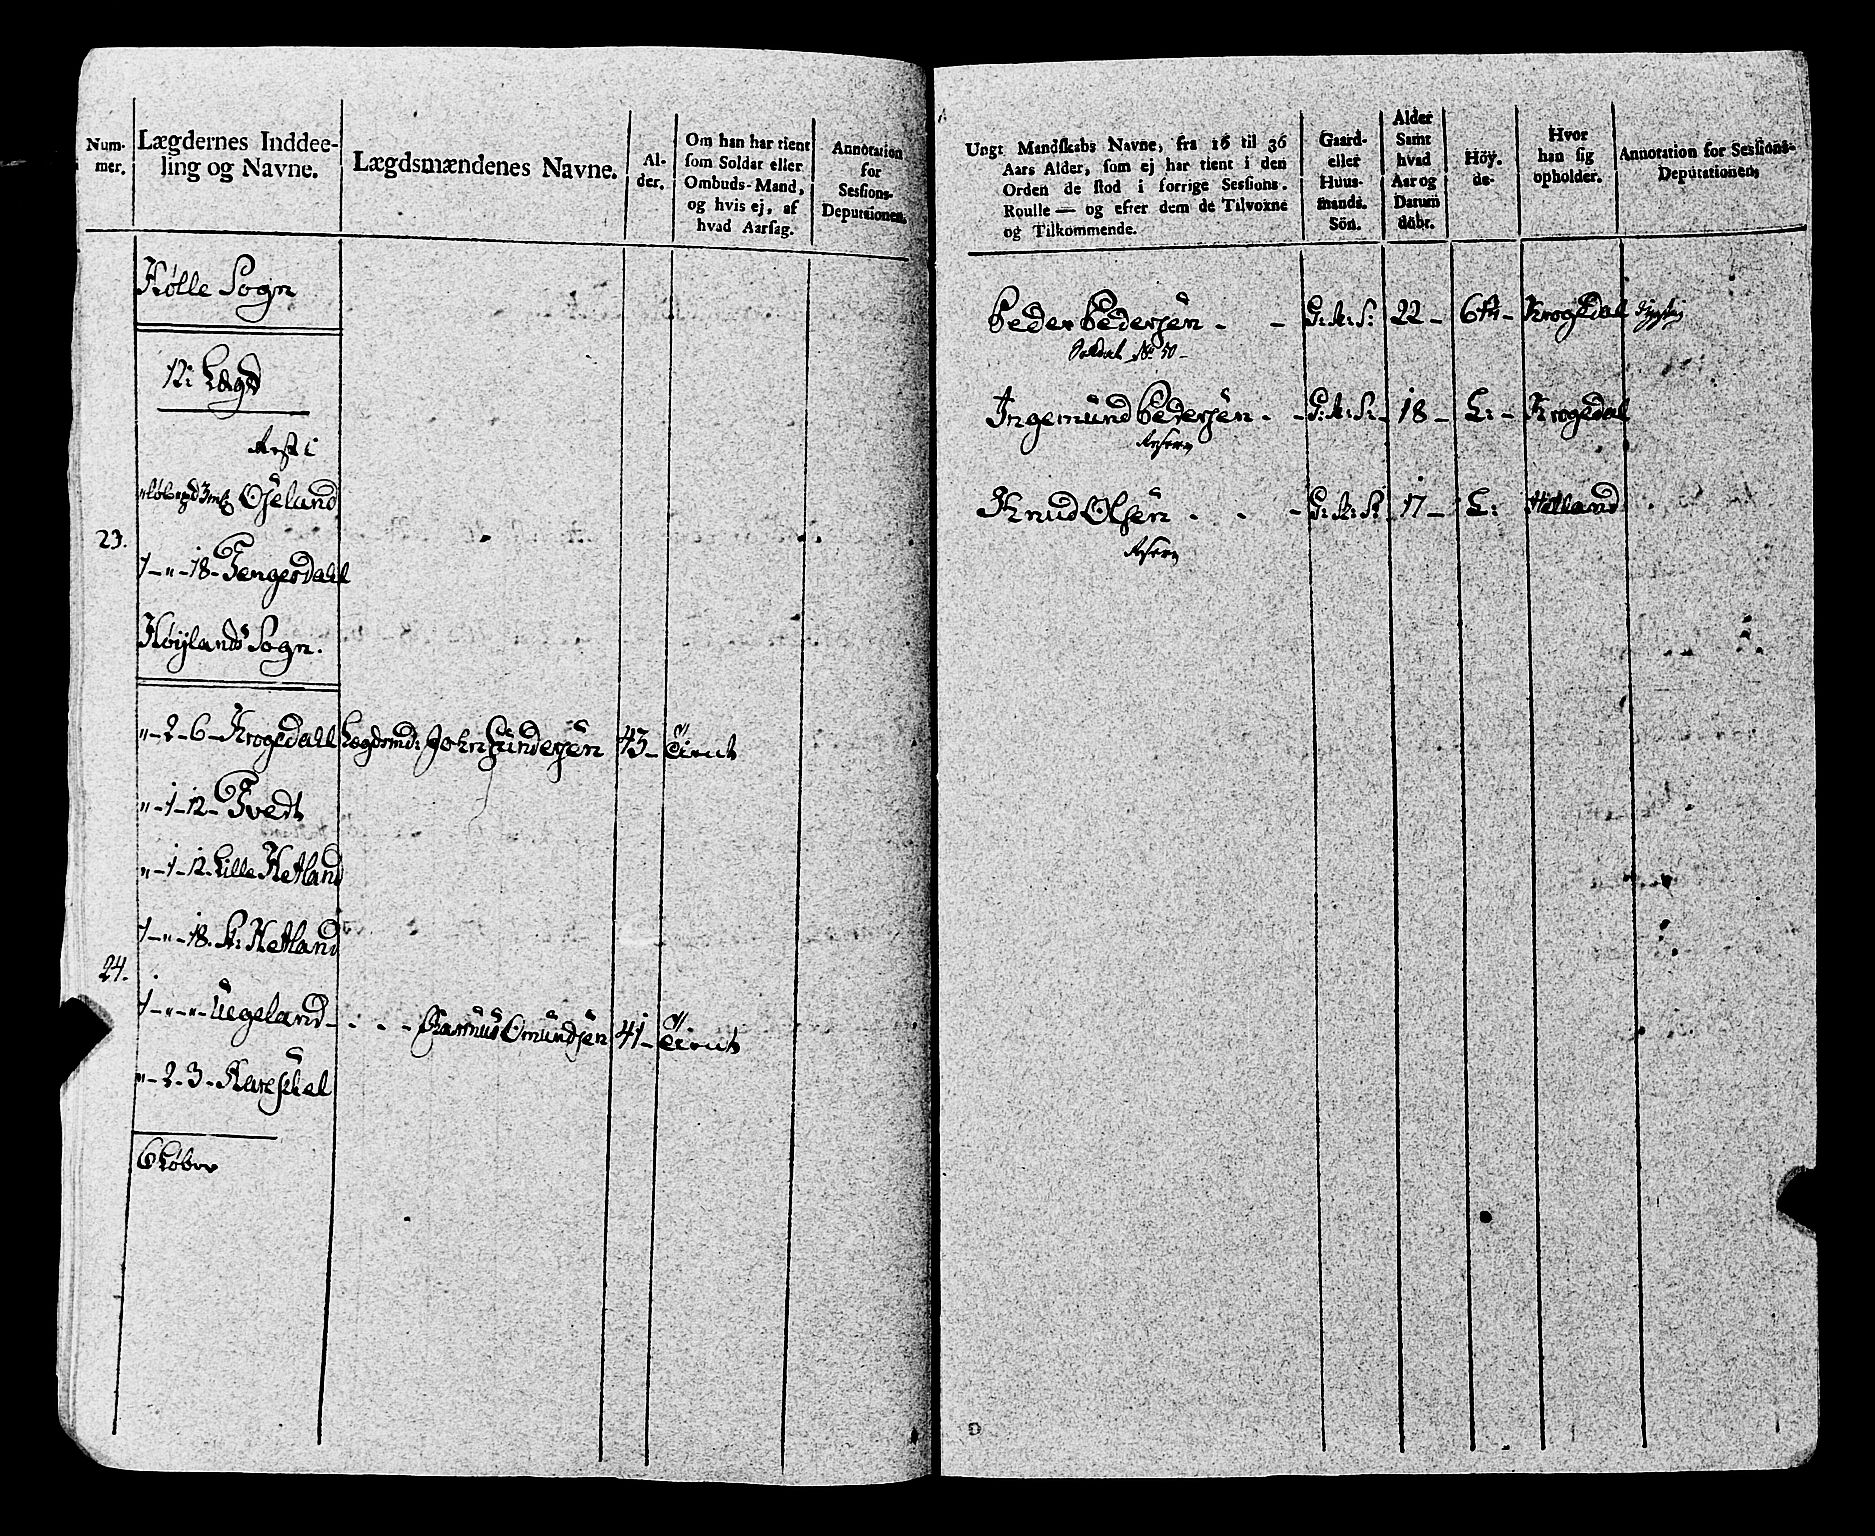 Num-
mer.
Lægdernes Inddee-
ling og Navne.
Lægdsmændenes Navne.
Al-
der.
Om han har tient
som Soldat eller
Ombuds-Mand,
og hvis ej, af
hvad Aarsag.
Annotation
for
Sessions-
Deputationen.
Hølle Sogn
12: Lægd
Rest i
Øjelund
23.
1 _ " _ 18 _ Tengesdahl
Høylands Sogn.
" _ 2 _ 6 _ Krogedahl Lægdsmd: John Gundersen 43 _ Tient
" _ 1 _ 12 _ Tvedt
" _ 1 _ 12 _ Lille Hetland
1 _ " _ 18. St: Hetland
24.
1 _ " _ " _ Uegeland _ . - - Rasmus Omundsen 41 _ Tient
" _ 2 _ 3 _
6 Løber
Ungt Mandskabs Navne, fra 16 til 36
Aars Alder, som ej har tient i den
Orden de stod i forrige Sessions-
Roulle — og efter dem de Tilvoxne
og Tilkommende.
Gaard-
eller
Huus-
mands.
Sön.
Alder
Samt
hvad
Aar og
Datum
döbt.
Höy-
de.
Hvor
han sig
opholder.
Annotation for Sessions-
Deputationen,
Peder Pedersen . - G: M: S: 22 _ Krogedal
Soldat No 50 -
Ingemund Pedersen . - G: M: S: 18 _ L: - Krogedal
Reserv
Knud Olsen . - - G: M: S: 17 _ L: Hetland
Reserv
D